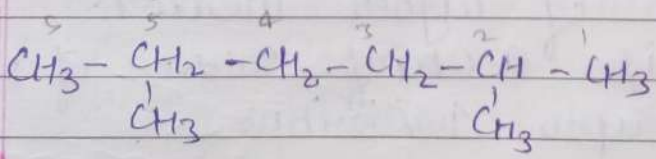 5 5 4 3 2 1
CH3 - CH2 - CH2 - CH2 - CH - CH3
CH3 CH3